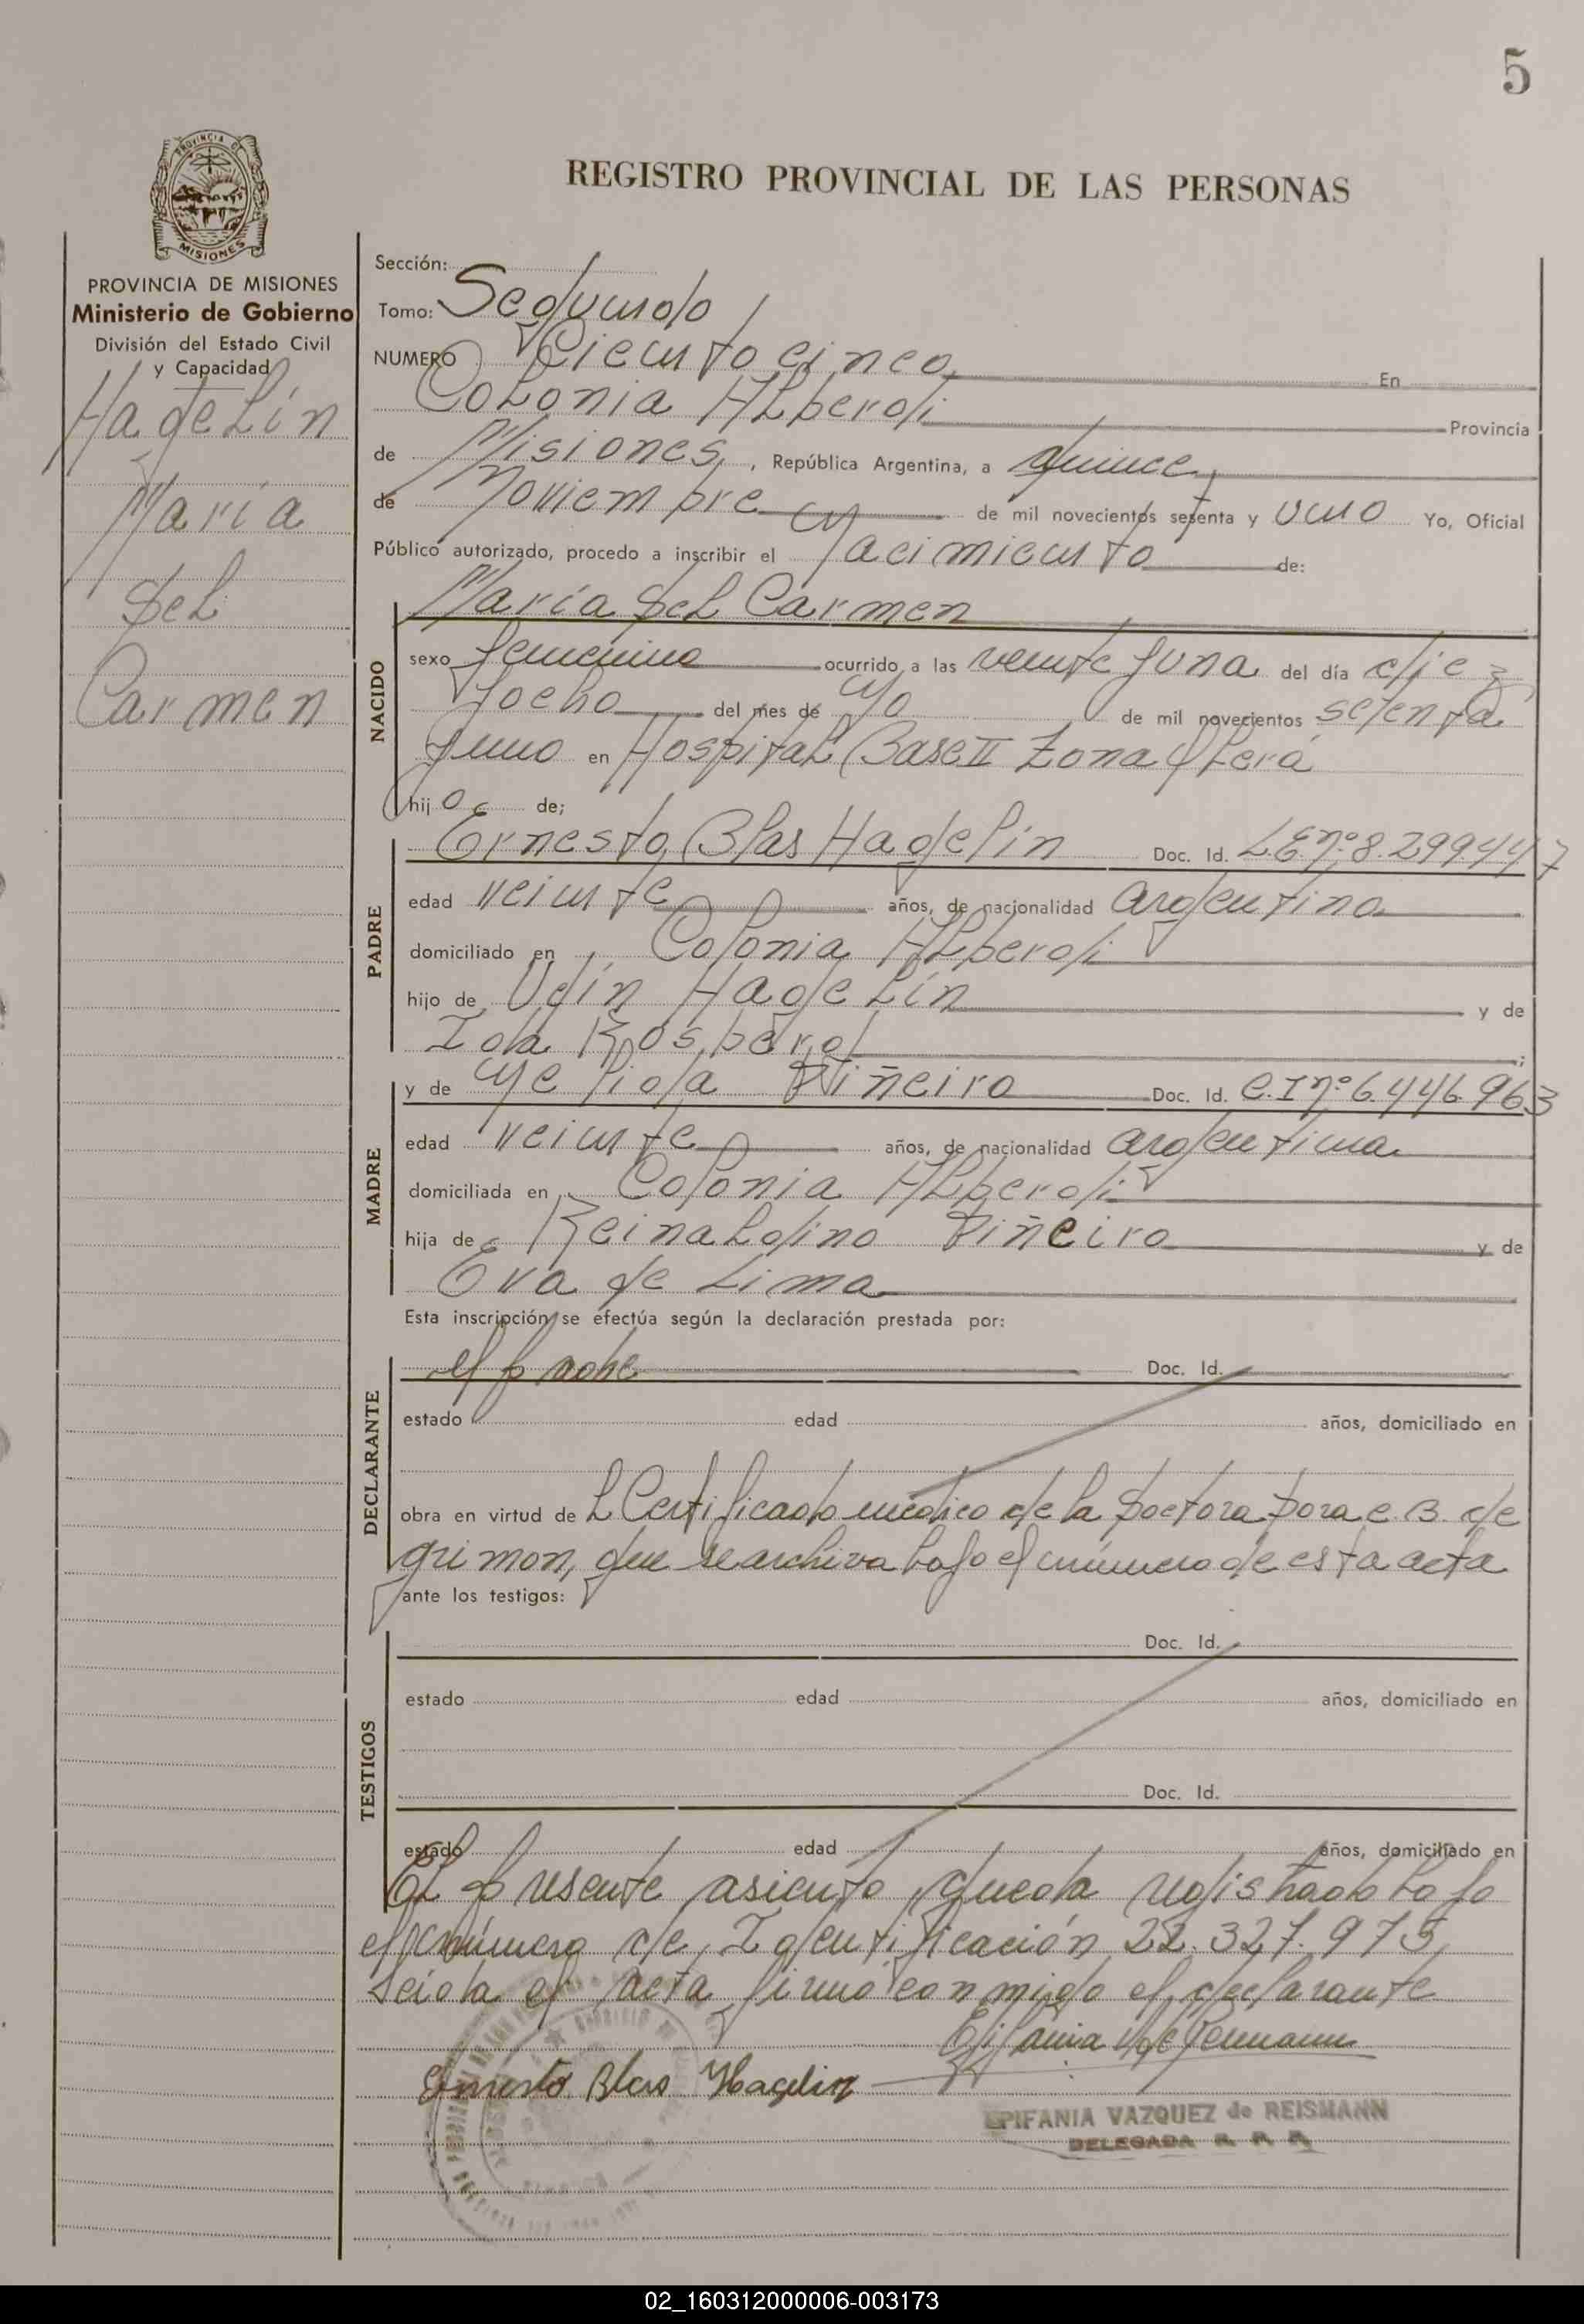 5
PROVINCIA DE MISIONES
REGISTRO PROVINCIAL DE LAS PERSONAS
PROVINCIA DE MISIONES
Ministerio de Gobierno
División del Estado Civil
y Capacidad
Hagelín
María
del
Carmen
Sección:
Tomo: Segundo
NUMERO Ciento cinco En
Colonia Alberdi Provincia
de Misiones, República Argentina, a quince
de Noviembre de mil novecientos setenta y uno Yo, Oficial
Público autorizado, procedo a inscribir el Nacimiento de:
NACIDO
María del Carmen
sexo femenino ocurrido a las veinte y una del día diez
y ocho del mes de de mil novecientos setenta
y uno en Hospital Base II Zona Oberá
hij a de;
PADRE
Ernesto Blas Hagelin Doc. Id. L.E nº 8.299.447
edad veinte años, de nacionalidad argentina
domiciliado en Colonia Alberdi
hijo de Hagelín y de
Ida ;
MADRE
y de Nelida Piñeiro Doc. Id. C.I nº 6.446.963
edad veinte años, de nacionalidad argentina
domiciliada en Colonia Alberdi
hija de Reinaldino Piñeiro y de
Eva de Lima
Esta inscripción se efectúa según la declaración prestada por:
DECLARANTE
el padre Doc. Id.
estado edad años, domiciliado en
obra en virtud de l Certificado médico de la Doctora Dora E. B. de
Grimon, que se archiva bajo el número de esta acta
ante los testigos:
TESTIGOS
Doc. Id.
estado edad años, domiciliado en
Doc. Id.
estado edad años, domiciliado en
El presente asiento queda registrado bajo
el número de Identificación 22.327.975
Leída el acta firmó conmigo el declarante
Ernesto Blas Hagelin
EPIFANIA VAZQUEZ de REISMANN
DELEGADA R. P. P.
02_160312000006-003173